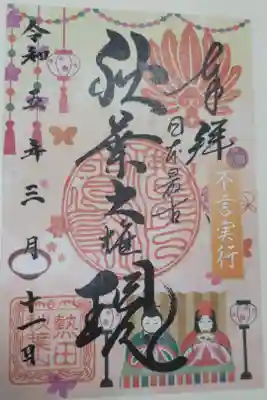 奉拝
日本最古
不言実行
秋葉大権現
令和五年三月十一日
熱田